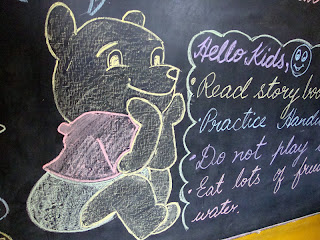 Hello Kids,
Read story
Practice
Do not play
Eat lots of
water.